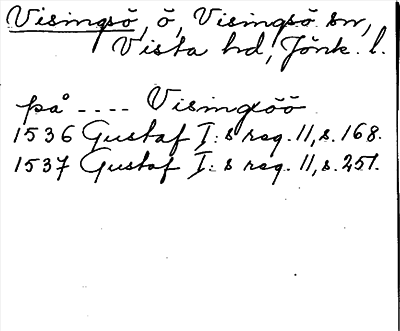 Visingsö, ö, Visingsö sn,
Vista hd, Jönk. l.
på ---- Visingxöö
1536 Gustaf I:s reg. 11, s. 168.
1537 Gustaf I:s reg. 11, s. 251.